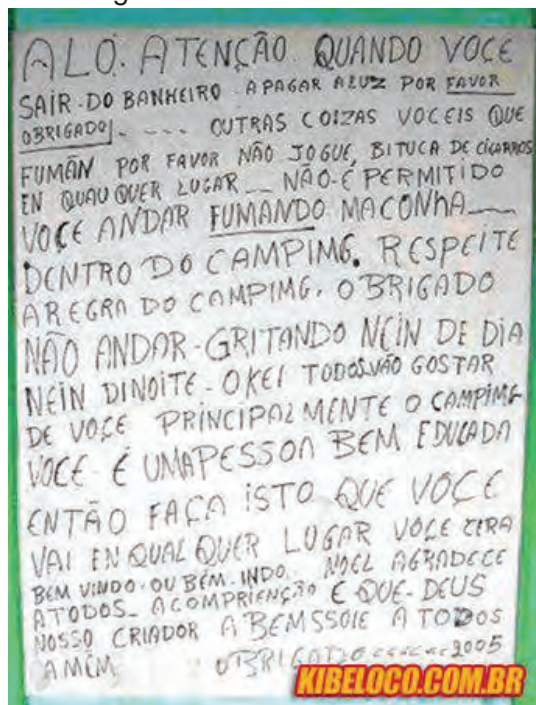 ALÔ. ATENÇÃO. QUANDO VOCE
SAIR. DO BANHEIRO. APAGAR ALUZ POR FAVOR
OBRIGADO. - - - . OUTRAS COIZAS VOCEIS QUE
FUMÃN POR FAVOR NÃO JOGUE, BITUCA DE CIGARROS
EN QUAUQUER LUGAR__ NÃO-É PERMITIDO
VOCE ANDAR FUMANDO MACONHA__
DENTRO DO CAMPIMG. RESPEITE
AREGRA DO CAMPIMG. OBRIGADO
NÃO ANDAR-GRITANDO NEIN DE DIA
NEIN DINOITE - OKEI TODOS.VÃO GOSTAR
DE VOCE PRINCIPALMENTE O CAMPIMG
VOCE - É UMAPESSOA BEM EDUCADA
ENTÃO FAÇA ISTO QUE VOCE
VAI EN QUALQUER LUGAR VOCE CERA
BEM VINDO-OU BEM-INDO. NOEL AGRADECE
ATODOS_ ACOMPRIENÇÃO E QUE-DEUS
NOSSO CRIADOR ABEMSSOIE A TODOS
AMÉM, OBRIGADO 2005
KIBELOCO.COM.BR